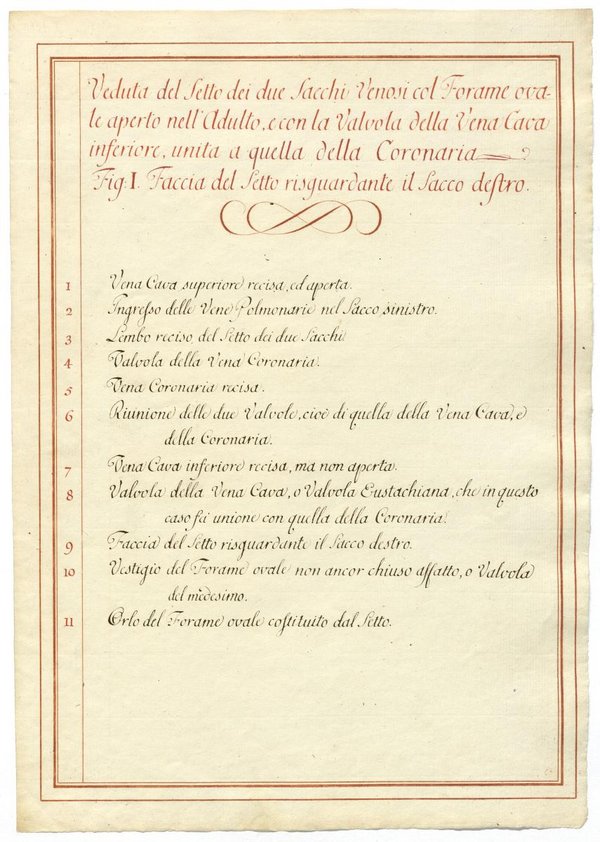 Veduta del Setto dei due Sacchi Venosi col Forame ova-
le aperto nell'Adulto, e con la Valvola della Vena Cava
inferiore, unita a quella della Coronaria
Fig. I. Faccia del Setto risguardante il Sacco destro.
1 Vena Cava superiore recisa, ed aperta.
2 Ingresso delle Vene Polmonarie nel Sacco sinistro.
3 Lembo reciso del Setto dei due Sacchi
4 Valvola della Vena Coronaria.
5 Vena Coronaria recisa.
6 Riunione delle due Valvole, cioè di quella della Vena Cava, e
della Coronaria.
7 Vena Cava inferiore recisa, ma non aperta.
8 Valvola della Vena Cava, o Valvola Eustachiana, che in questo
caso fa unione con quella della Coronaria.
9 Faccia del Setto risguardante il Sacco destro.
10 Vestigio del Forame ovale non ancor chiuso affatto, o Valvola
del medesimo.
11 Orlo del Forame ovale costituito dal Setto.